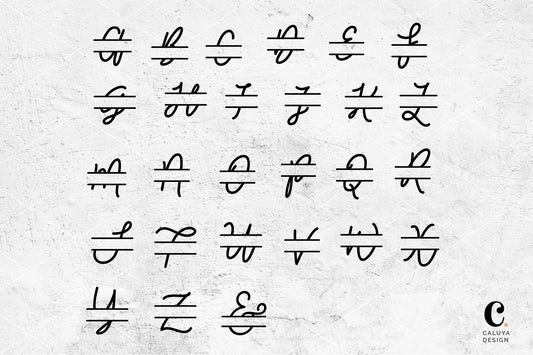 A B C D E F
G H I J K L
M N O P Q R
S T U V W X
Y Z &
C.
CALUYA
DESIGN